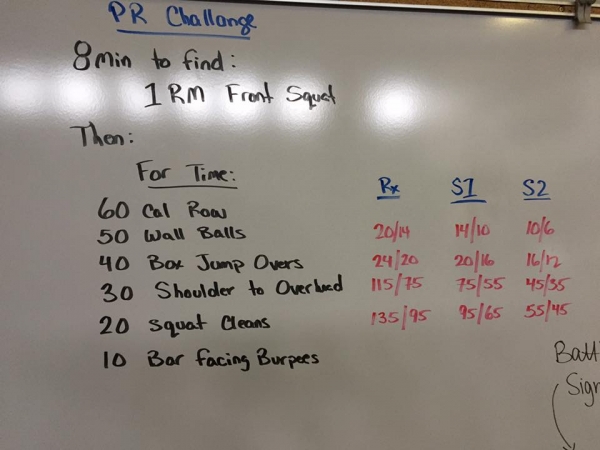 PR Challange
8min to find:
1 RM Front Squat
Then:
For Time:
Rx S1 S2
60 Cal Row
50 Wall Balls 20/14 14/10 10/6
40 Box Jump Overs 24/20 20/16 16/12
30 Shoulder to Overhead 115/75 75/55 45/35
20 Squat Cleans 135/95 95/65 55/45
10 Bar Facing Burpees